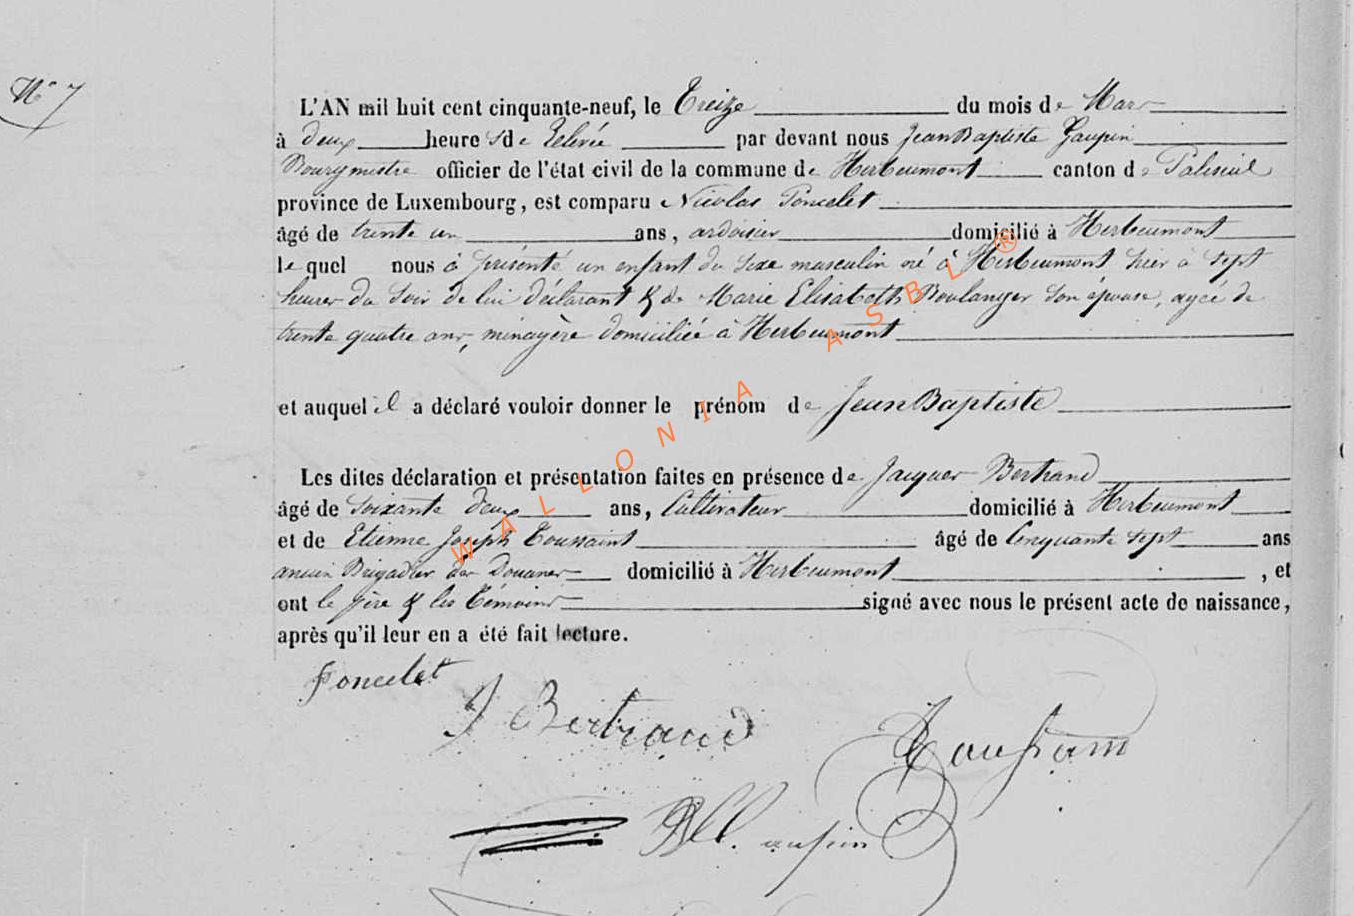 N° 7
L'AN mil huit cent cinquante-neuf, le Treize du mois de Mars
à deux heures de Relevée par devant nous Jean Baptiste Jaupin
Bourgmestre officier de l'état civil de la commune de Herbeumont canton de Paliseul
province de Luxembourg, est comparu Nicolas Poncelet
âgé de trente un ans, ardoisier domicilié à Herbeumont
lequel nous à présenté un enfant du sexe masculin né à Herbeumont hier à sept
heures du soir de lui déclarant & de Marie Elisabeth Boulanger son épouse, agée de
trente quatre ans, ménagère domiciliée à Herbeumont
et auquel il a déclaré vouloir donner le prénom de Jean Baptiste
Les dites déclaration et présentation faites en présence de Jacques Bertrand
âgé de soixante deux ans, Cultivateur domicilié à Herbeumont
et de Etienne Joseph Toussaint âgé de Cinquante sept ans
ancien Brigadier des Douanes domicilié à Herbeumont, et
ont le père & les témoins signé avec nous le présent acte de naissance,
après qu'il leur en a été fait lecture.
Poncelet
J Bertrand
WALLONIA ASBL ®